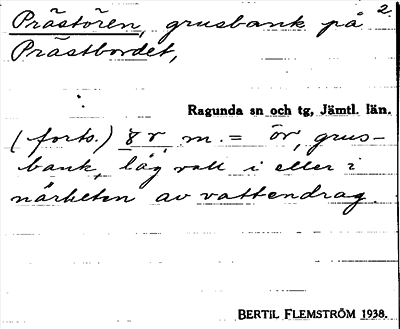 2.
Prästören, grusbank på
Prästbordet,
Ragunda sn och tg, Jämtl. län.
(forts.) m. = ör, grus-
bank, låg vall i eller i
närheten av vattendrag.
BERTIL FLEMSTRÖM 1938.